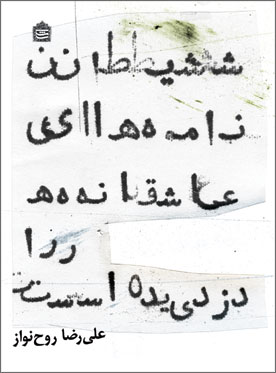 شششیططانن
نامههاایی
عاشقانهه
ررا
دزدییده اسست
علی‌رضا روح‌نواز